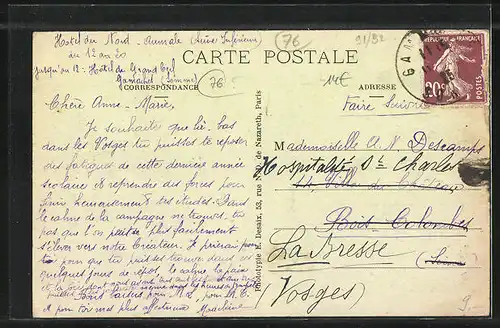 Hôtel du Nord - Aumale (Seine Inférieure)
du 12 au 20
jusqu'au 12: Hôtel du Grand Cerf
Gamaches (Somme)
76
91/92
CARTE POSTALE
CORRESPONDANCE
76
14€
ADRESSE
Faire Suivre
GAM
RÉPUBLIQUE FRANÇAISE
20c
POSTES
Chère Anne-Marie,
Je souhaite que là-bas
dans les Vosges tu puisses te reposer
des fatigues de cette dernière année
scolaire & reprendre des forces pour
finir heureusement tes études. Dans
le calme de la campagne ne trouves-tu
pas que l'on puisse plus facilement
s'élever vers notre Créateur. Je prierai
pour que tu puisses trouver dans ces
quelques jours de repos, le calme, la paix
Bons baisers pour
et pour toi mes plus affectueux Madeleine
Phototypie E. Desaix, 53, rue N.-D. de Nazareth, Paris
Mademoiselle A. M. Descamps
Hospitalité St Charles
Bois-Colombes
La Bresse
(Vosges)
9.